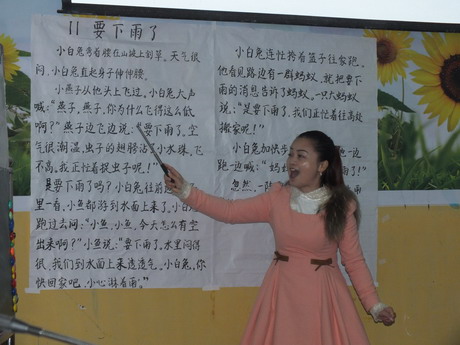 11 要下雨了
小白兔弯着腰在山坡上割草。天气很
闷,小白兔直起身子伸伸腰。
小燕子从他头上飞过。小白兔大声
喊:“燕子,燕子,你为什么飞得这么低
啊?”燕子边飞边说:“要下雨了。空
气很潮湿。虫子的翅膀沾 小水珠,飞
不高。我正忙着捉虫子呢!”
是要下雨了吗?小白兔往前
里一看,小鱼都游到水面上来了。小白
跑过去问:“小鱼,小鱼,今天怎么有空
出来啊?”小鱼说:“要下雨了。水里闷得
很,我们到水面上来透透气。小白兔,你
快回家吧,小心淋着雨。”
小白兔连忙挎着篮子往家跑。
他看见路边有一群蚂蚁,就把要下
雨的消息告诉了蚂蚁。一只大蚂蚁
说:“是要下雨了,我们正忙着往高处
搬家呢!”
小白兔加快步 他一边
跑一边喊:“妈
忽然,一阵